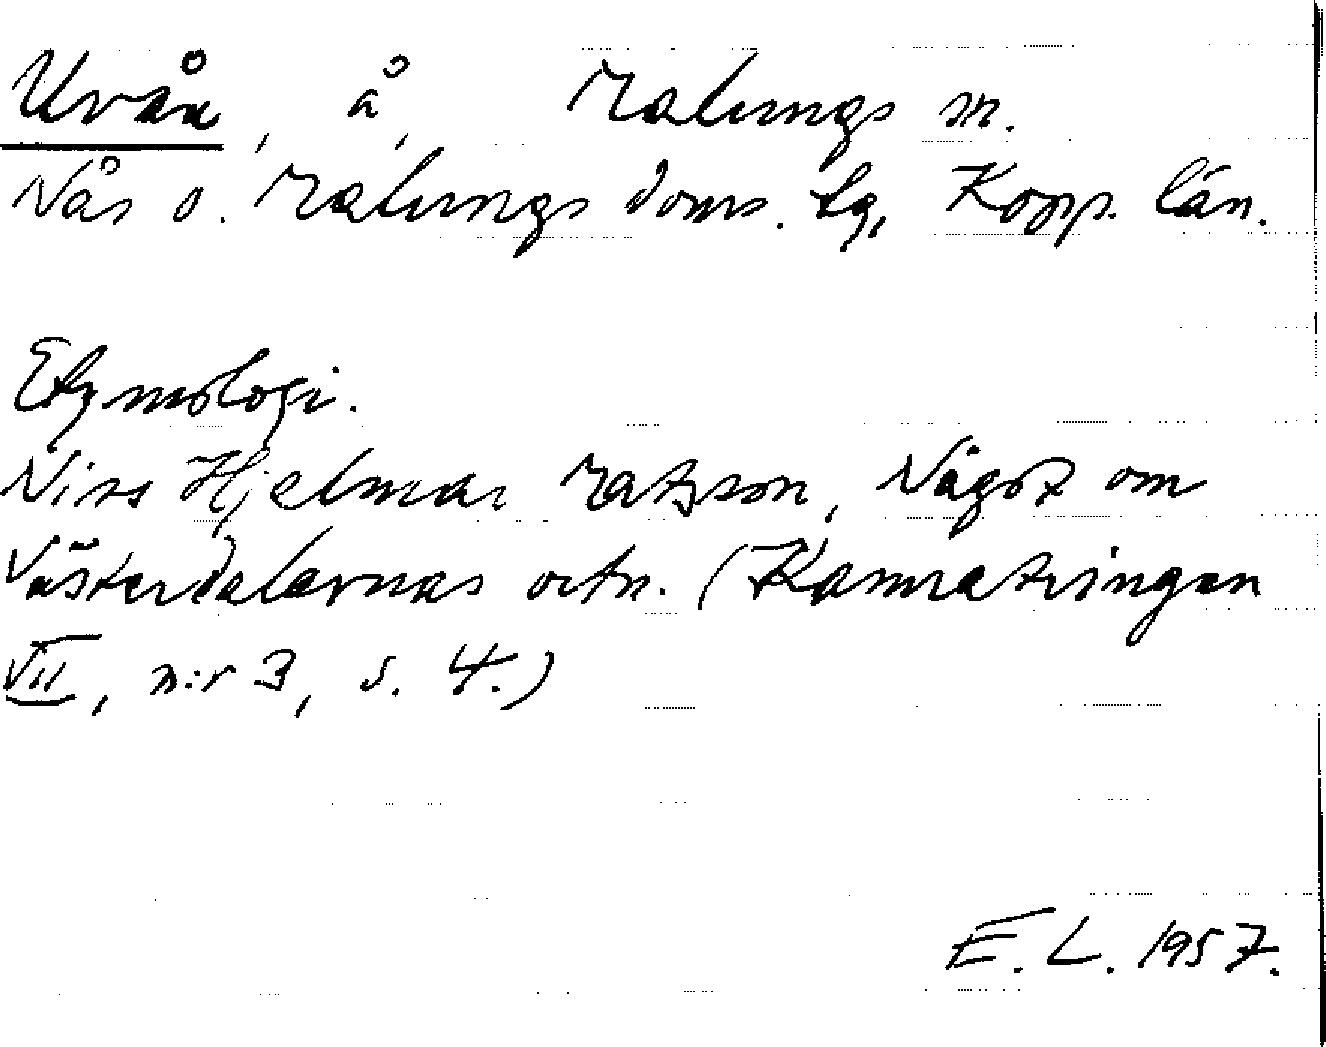 Uvån, å, Malungs sn.
Nås o. Malungs doms. tg, Kopp. län.
Etymologi.
Niss Hjalmar Matsson, Något om
Västerdalarnas ortn. (Kamratringen
VII, n:r 3, s. 4.)
E. L. 1957.